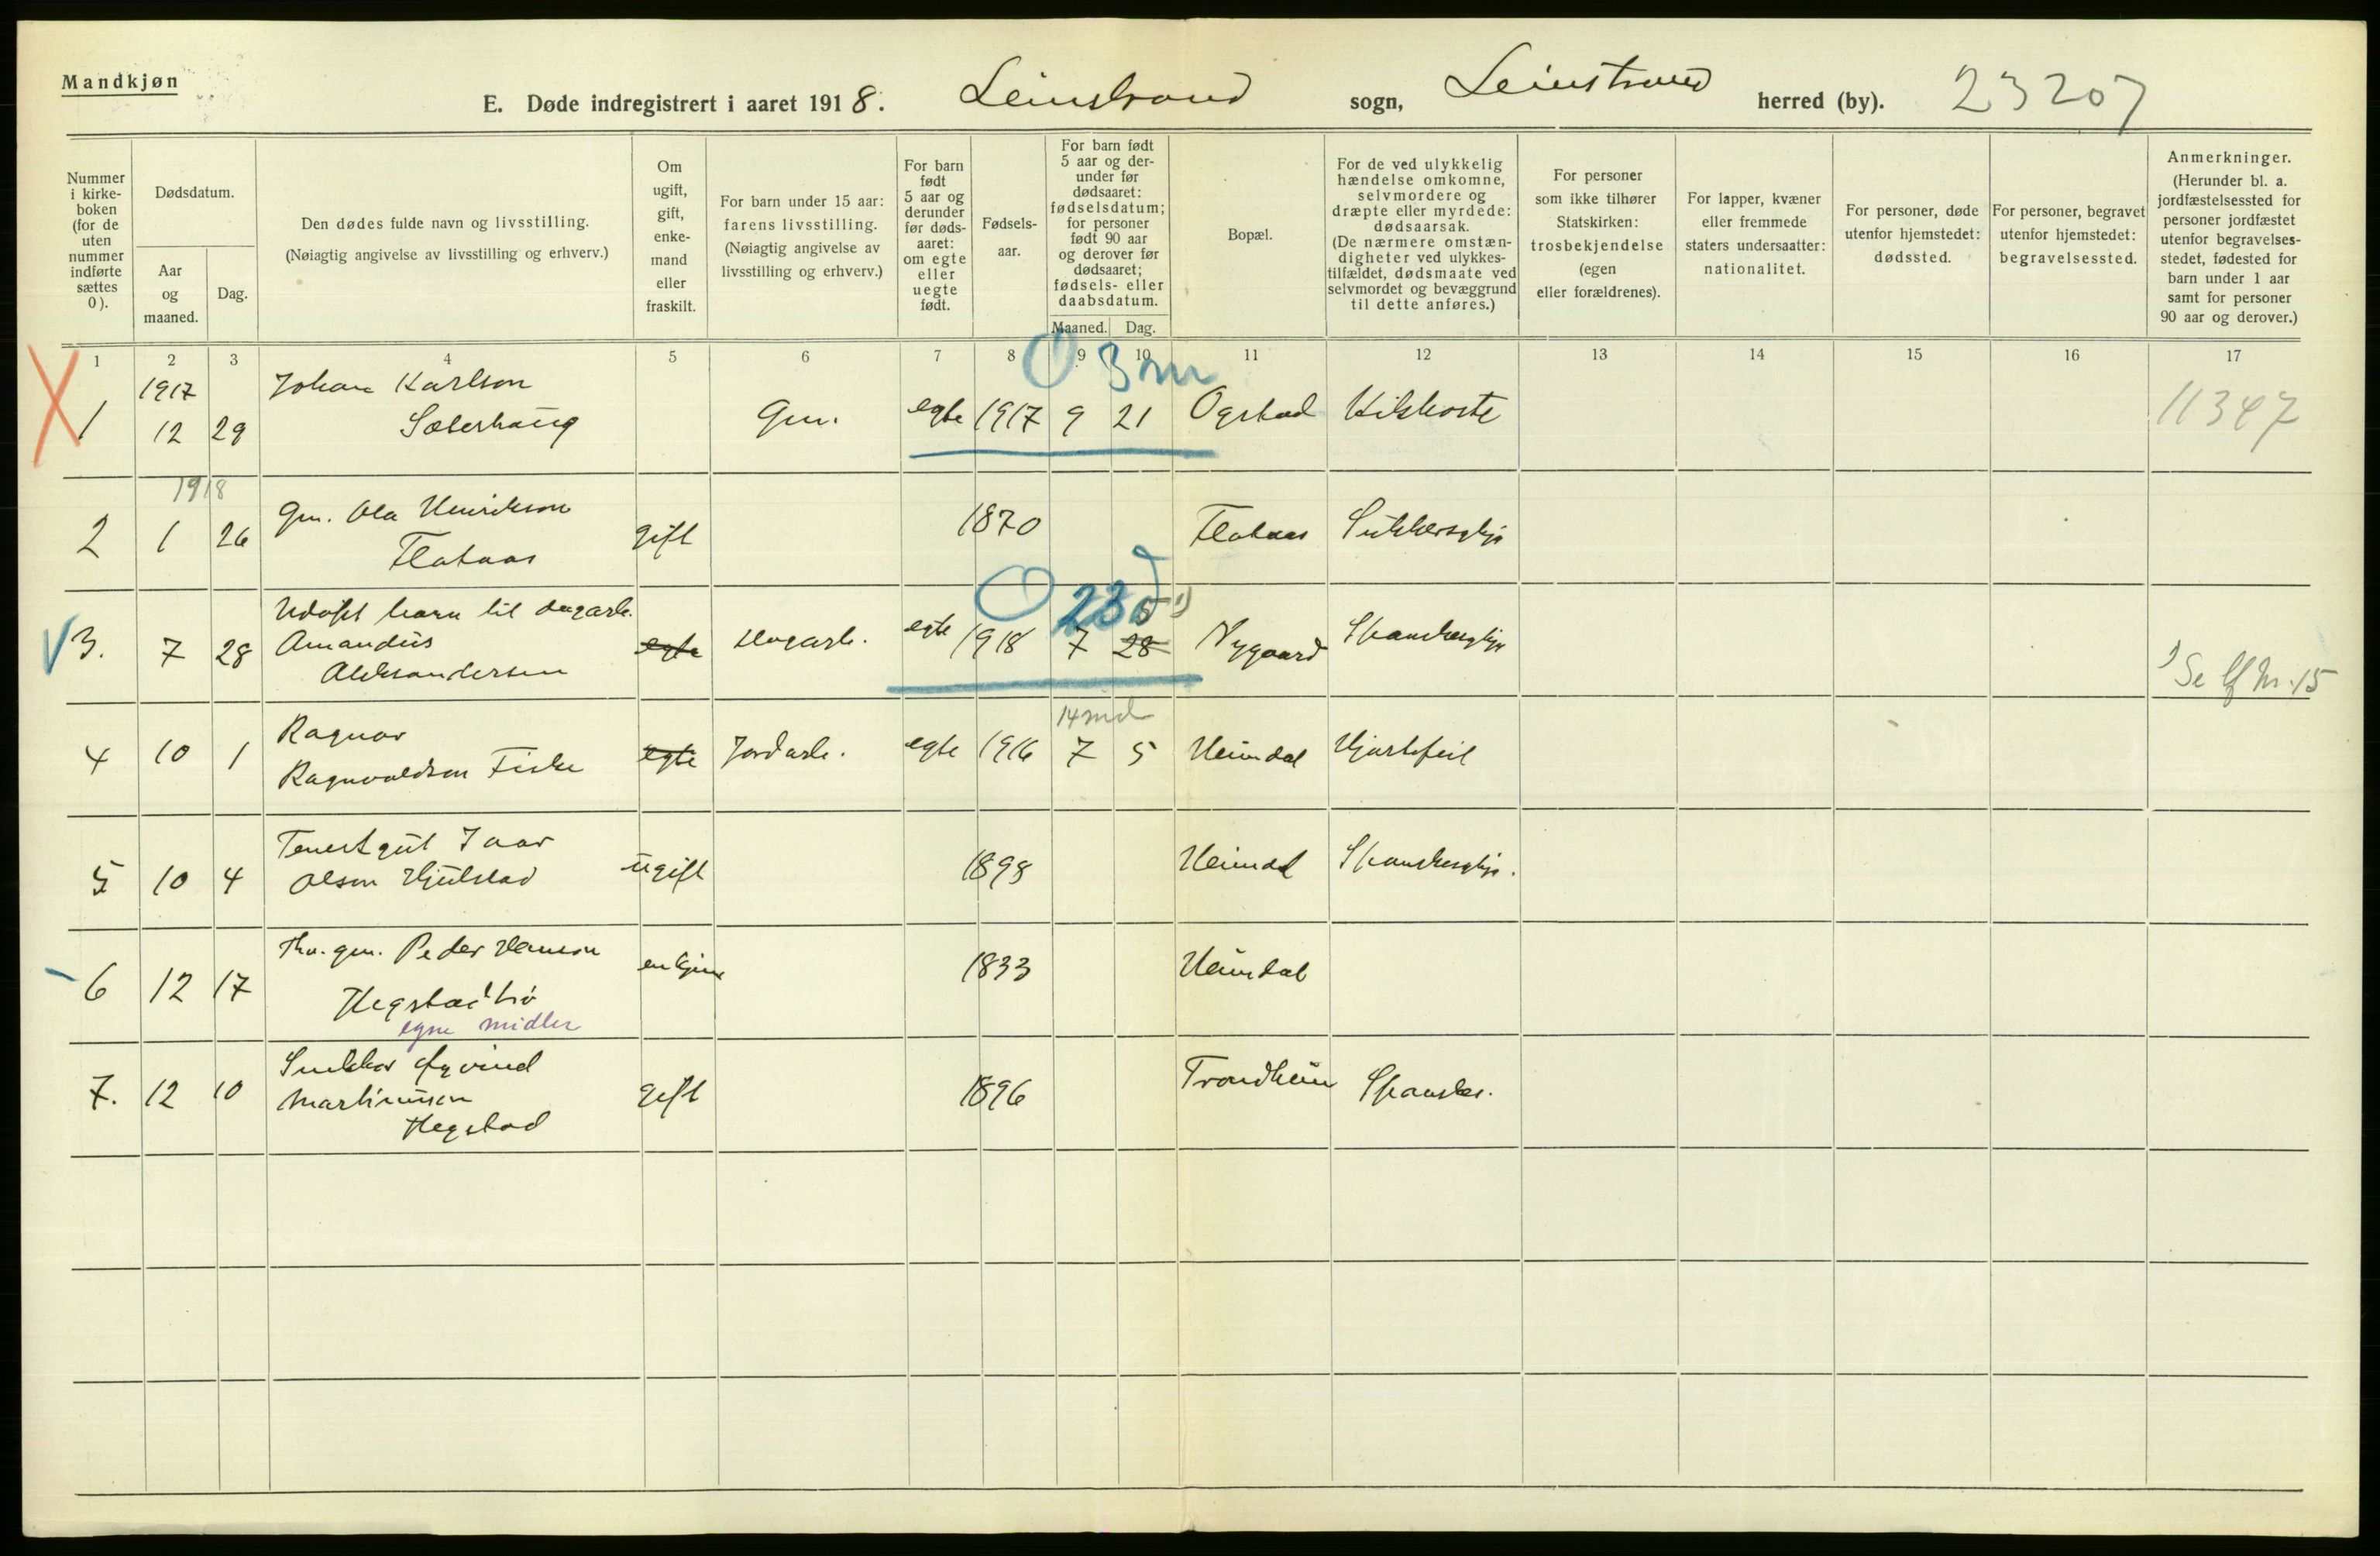 Mandkjøn
E. Døde indregistrert i aaret 1918. Leinstrand sogn, Leinstrand herred (by). 23207
Nummer i kirke-boken (for de uten nummer indførte sættes 0).
Dødsdatum.
Aar og maaned.
Dag.
Den dødes fulde navn og livsstilling.
(Nøiagtig angivelse av livsstilling og erhverv.)
Om ugift, gift, enke-mand eller fraskilt.
For barn under 15 aar: farens livsstilling.
(Nøiagtig angivelse av livsstilling og erhverv.)
For barn født 5 aar og derunder før døds-aaret: om egte eller uegte født.
Fødsels-aar.
For barn født 5 aar og der-under før dødsaaret: fødselsdatum; for personer født 90 aar og derover før dødsaaret; fødsels- eller daabsdatum.
Maaned. Dag.
Bopæl.
For de ved ulykkelig hændelse omkomne, selvmordere og dræpte eller myrdede: dødsaarsak.
(De nærmere omstæn-digheter ved ulykkes-tilfældet, dødsmaate ved selvmordet og bevæggrund til dette anføres.)
For personer som ikke tilhører Statskirken: trosbekjendelse (egen eller forældrenes).
For lapper, kvæner eller fremmede staters undersaatter: nationalitet.
For personer, døde utenfor hjemstedet: dødssted.
For personer, begravet utenfor hjemstedet: begravelsessted.
Anmerkninger.
(Herunder bl. a. jordfæstelsessted for personer jordfæstet utenfor begravelses-stedet, fødested for barn under 1 aar samt for personer 90 aar og derover.)
1 2 3 4 5 6 7 8 9 10 11 12 13 14 15 16 17
3 m
1917 Johan Karlson
1 12 29 Sæterhaug Gm. egte 1917 9 21 Ogstad Kikhoste 11347
1918
2 1 26 Gm. Ola Henrikson gift 1870 Flataas Sukkersyke
Flataas
23 d
Udøpt barn til dagarb. 5 1)
3. 7 28 Amandus egte dagarb. egte 1918 7 28 Nygaard Spanskesyke
Aleksandersen 1) Se lf Nr. 15
14 md
4 10 1 Ragnar egte Jordarb. egte 1916 7 5 Heimdal Hjertefeil
Ragnvaldsen Fiske
Tenestgut Ivar
5 10 4 Olson Hjulstad ugift 1898 Heimdal Spanskesyke.
6 12 17 Fhv. gm. Peder Hanson enkjem 1833 Heimdal
Hegstadtrø
egne midler
Snekker Øyvind
7. 12 10 Martinusen gift 1896 Trondheim Spanske.
Hegstad